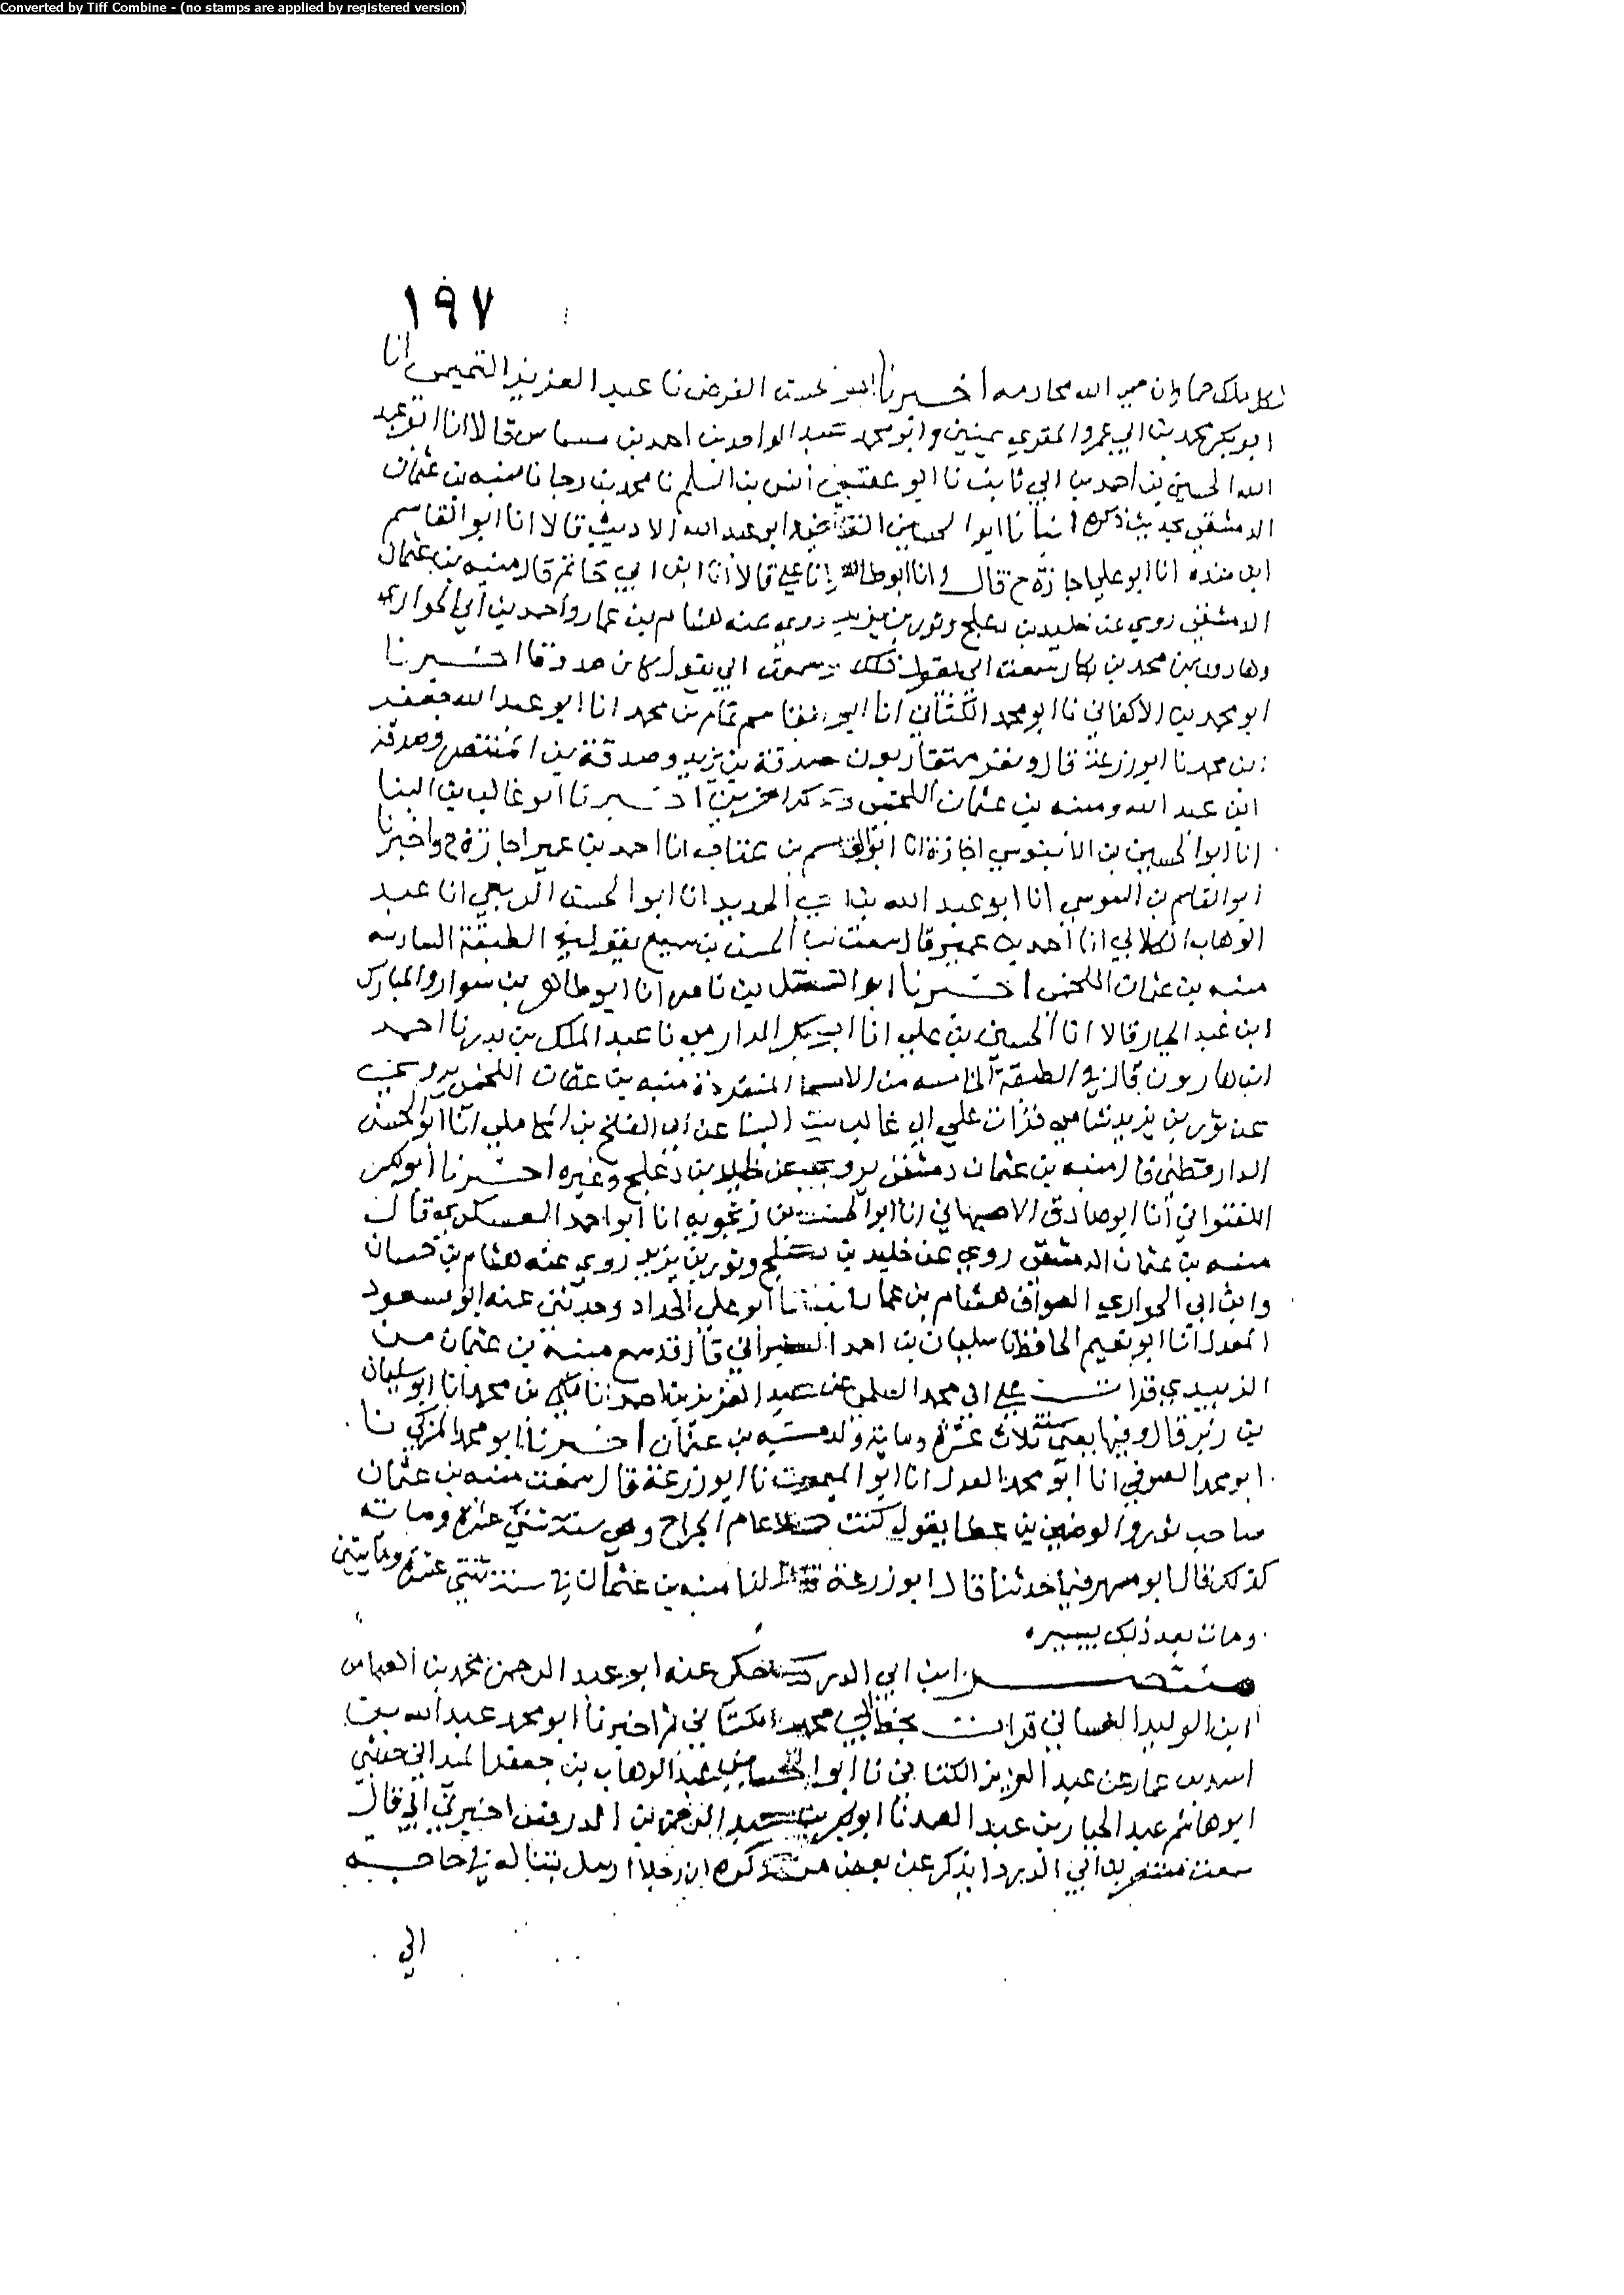 Converted by Tiff Combine - (no stamps are applied by registered version)
١٩٧
لكل ملك حما وان حمى الله محارمه اخبرنا ابو الفرضي نا عبد العزيز التميمي انا
ابو بكر محمد بن ابي عمرو المقري بمنين وابو محمد عبد الواحد بن احمد بن مسماس قالا انا ابو عبد
الله الحسين بن احمد بن ابي ثابت نا ابو عقيل انس بن السلم نا محمد بن رجا نا منبه بن عثمان
الدمشقي بحديث ذكره انبانا ابو الحسين القاضي وابو عبد الله الاديب قالا انا ابو القاسم
ابن منده انا ابو علي اجازة ح قال وانا ابو طاهر انا علي قالا انا ابن ابي حاتم قال منبه بن عثمان
الدمشقي روى عن خليد بن دعلج وثور بن يزيد روى عنه هشام بن عمار واحمد بن ابي الحواري
وهارون بن محمد بن بكار سمعت ابي يقول ذلك وسمعت ابي يقول كان صدوقا اخبرنا
ابو محمد بن الاكفاني نا ابو محمد الكتاني انا ابو القاسم تمام بن محمد انا ابو عبد الله جعفر
بن محمد نا ابو زرعة قال ونفر متقاربون صدقة بن يزيد وصدقة بن المنتصر وصدقة
ابن عبد الله ومنبه بن عثمان اللخمي وذكر اخرين اخبرنا ابو غالب بن البنا
انا ابو الحسين بن الابنوسي اجازة انا ابو القاسم بن عتاب انا احمد بن عمير اجازة ح واخبرنا
ابو القاسم بن السوسي انا ابو عبد الله بن ابي الحديد انا ابو الحسن الربعي انا عبد
الوهاب الكلابي انا احمد بن عمير قال سمعت ابا الحسن بن سميع يقول في الطبقة السادسة
منبه بن عثمان اللخمي اخبرنا ابو الفضل بن ناصر انا ابو طاهر بن سوار والمبارك
ابن عبد الجبار قالا انا الحسين بن علي انا ابو بكر الدارمي نا عبد الملك بن بدر نا احمد
ابن هارون قال في الطبقة الخامسة من الاسما المنفردة منبه بن عثمان اللخمي يروي
عن ثور بن يزيد شامي قرات على ابي غالب بن البنا عن ابي الفتح بن المحاملي انا ابو الحسن
الدارقطني قال منبه بن عثمان دمشقي يروي عن خليد بن دعلج وغيره اخبرنا ابو بكر
اللفتواني انا ابو صادق الاصبهاني انا ابو الحسن بن زنجويه انا ابو احمد العسكري قال
منبه بن عثمان الدمشقي روى عن خليد بن دعلج وثور بن يزيد روى عنه هشام بن حسان
وابن ابي الحواري الصواف هشام بن عمار انبانا ابو علي الحداد وحدثني عنه ابو مسعود
المعدل انا ابو نعيم الحافظ نا سليمان بن احمد الطبراني قال قد سمع منبه بن عثمان من
الزبيدي قرات على ابي محمد السلمي عن عبد العزيز بن احمد انا مكي بن محمد انا ابو سليمان
بن زبر قال وفيها يعني سنة ثلاث عشرة وماية ولد منبه بن عثمان اخبرنا ابو محمد المزكي نا
ابو محمد الصوفي انا ابو محمد العدل انا ابو الميمون نا ابو زرعة قال سمعت منبه بن عثمان
صاحب ثور والوضين بن عطا يقول كنت حملا عام الجراح وهي سنة ثنتي عشرة وماية
كذلك قال ابو مسهر فيما حدثنا قال ابو زرعة قدم لنا منبه بن عثمان في سنة ثنتي عشرة ومايتين
ومات بعد ذلك بيسير
منتصر ابن ابي الدرداء حكى عنه ابو عبد الرحمن محمد بن العباس
ابن الوليد الغساني قرات بخط ابي محمد الكتاني ثم اخبرنا ابو محمد عبد الله بن
اسد بن عمار عن عبد العزيز الكتاني نا ابو الحسين عبد الوهاب بن جعفر الميداني حدثني
ابو هاشم عبد الجبار بن عبد الصمد نا ابو بكر بن عبد الرحمن بن الدرفس اخبرني ابي قال
سمعت منتصر بن ابي الدردا يذكر عن بعض من ذكره ان رجلا ارسل بنتا له في حاجة
الى